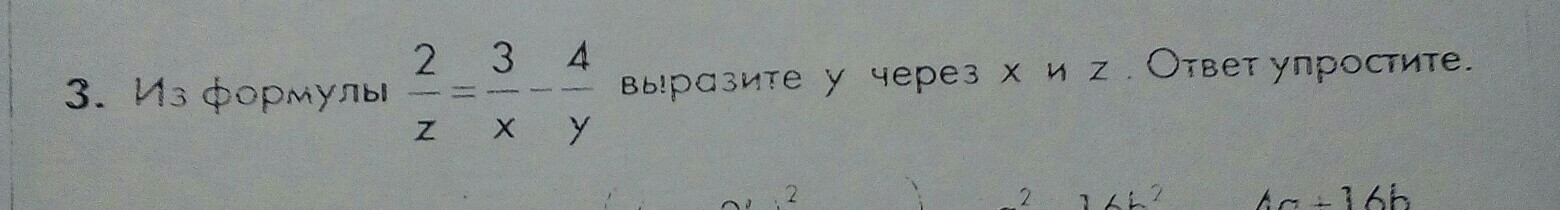 3. Из формулы 2/z = 3/x - 4/y выразите y через x и z. Ответ упростите.